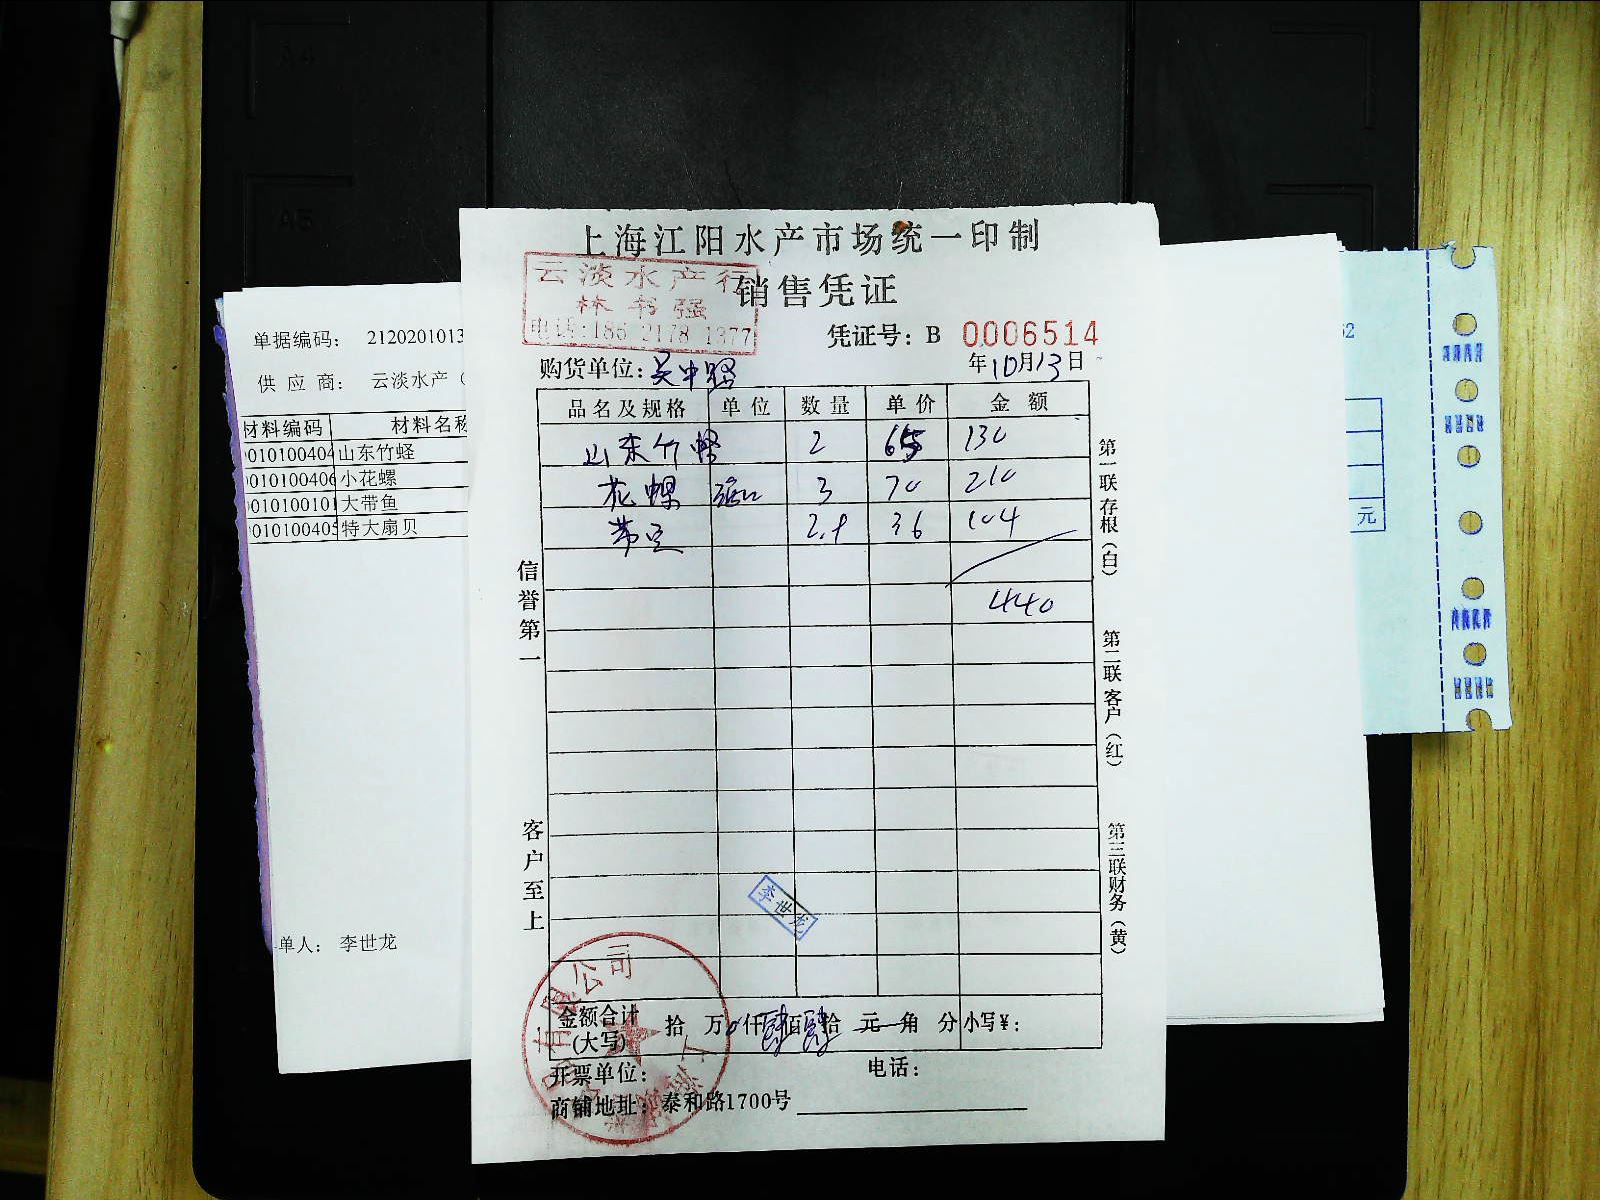 上海江阳水产市场统一印制
云淡水产行
林书强
电话:186 2178 1377
销售凭证
凭证号: B 0006514
购货单位: 吴中路 年10月13日
品名及规格 单位 数量 单价 金额
山东竹蛏 2 65 130
花螺 3 70 210
2.9 36 104
440
信誉第一
客户至上
第一联存根(白)
第二联客户(红)
第三联财务(黄)
李世龙
金额合计(大写) 拾 万 仟肆佰肆拾 元 角 分 小写¥:
开票单位: 电话:
商铺地址: 泰和路1700号
有限公司
单据编码: 2120201013
供应商: 云淡水产(
材料编码 材料名称
010100404 山东竹蛏
010100406 小花螺
010100101 大带鱼
010100405 特大扇贝
单人: 李世龙
元